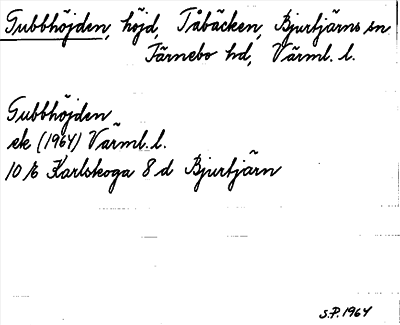 Gubbhöjden, höjd, Tåbäcken, Bjurtjärns sn
Färnebo hd, Värml. l.
Gubbhöjden
ek (1964) Värml. l.
10 E Karlskoga 8 d Bjurtjärn
S.P. 1964